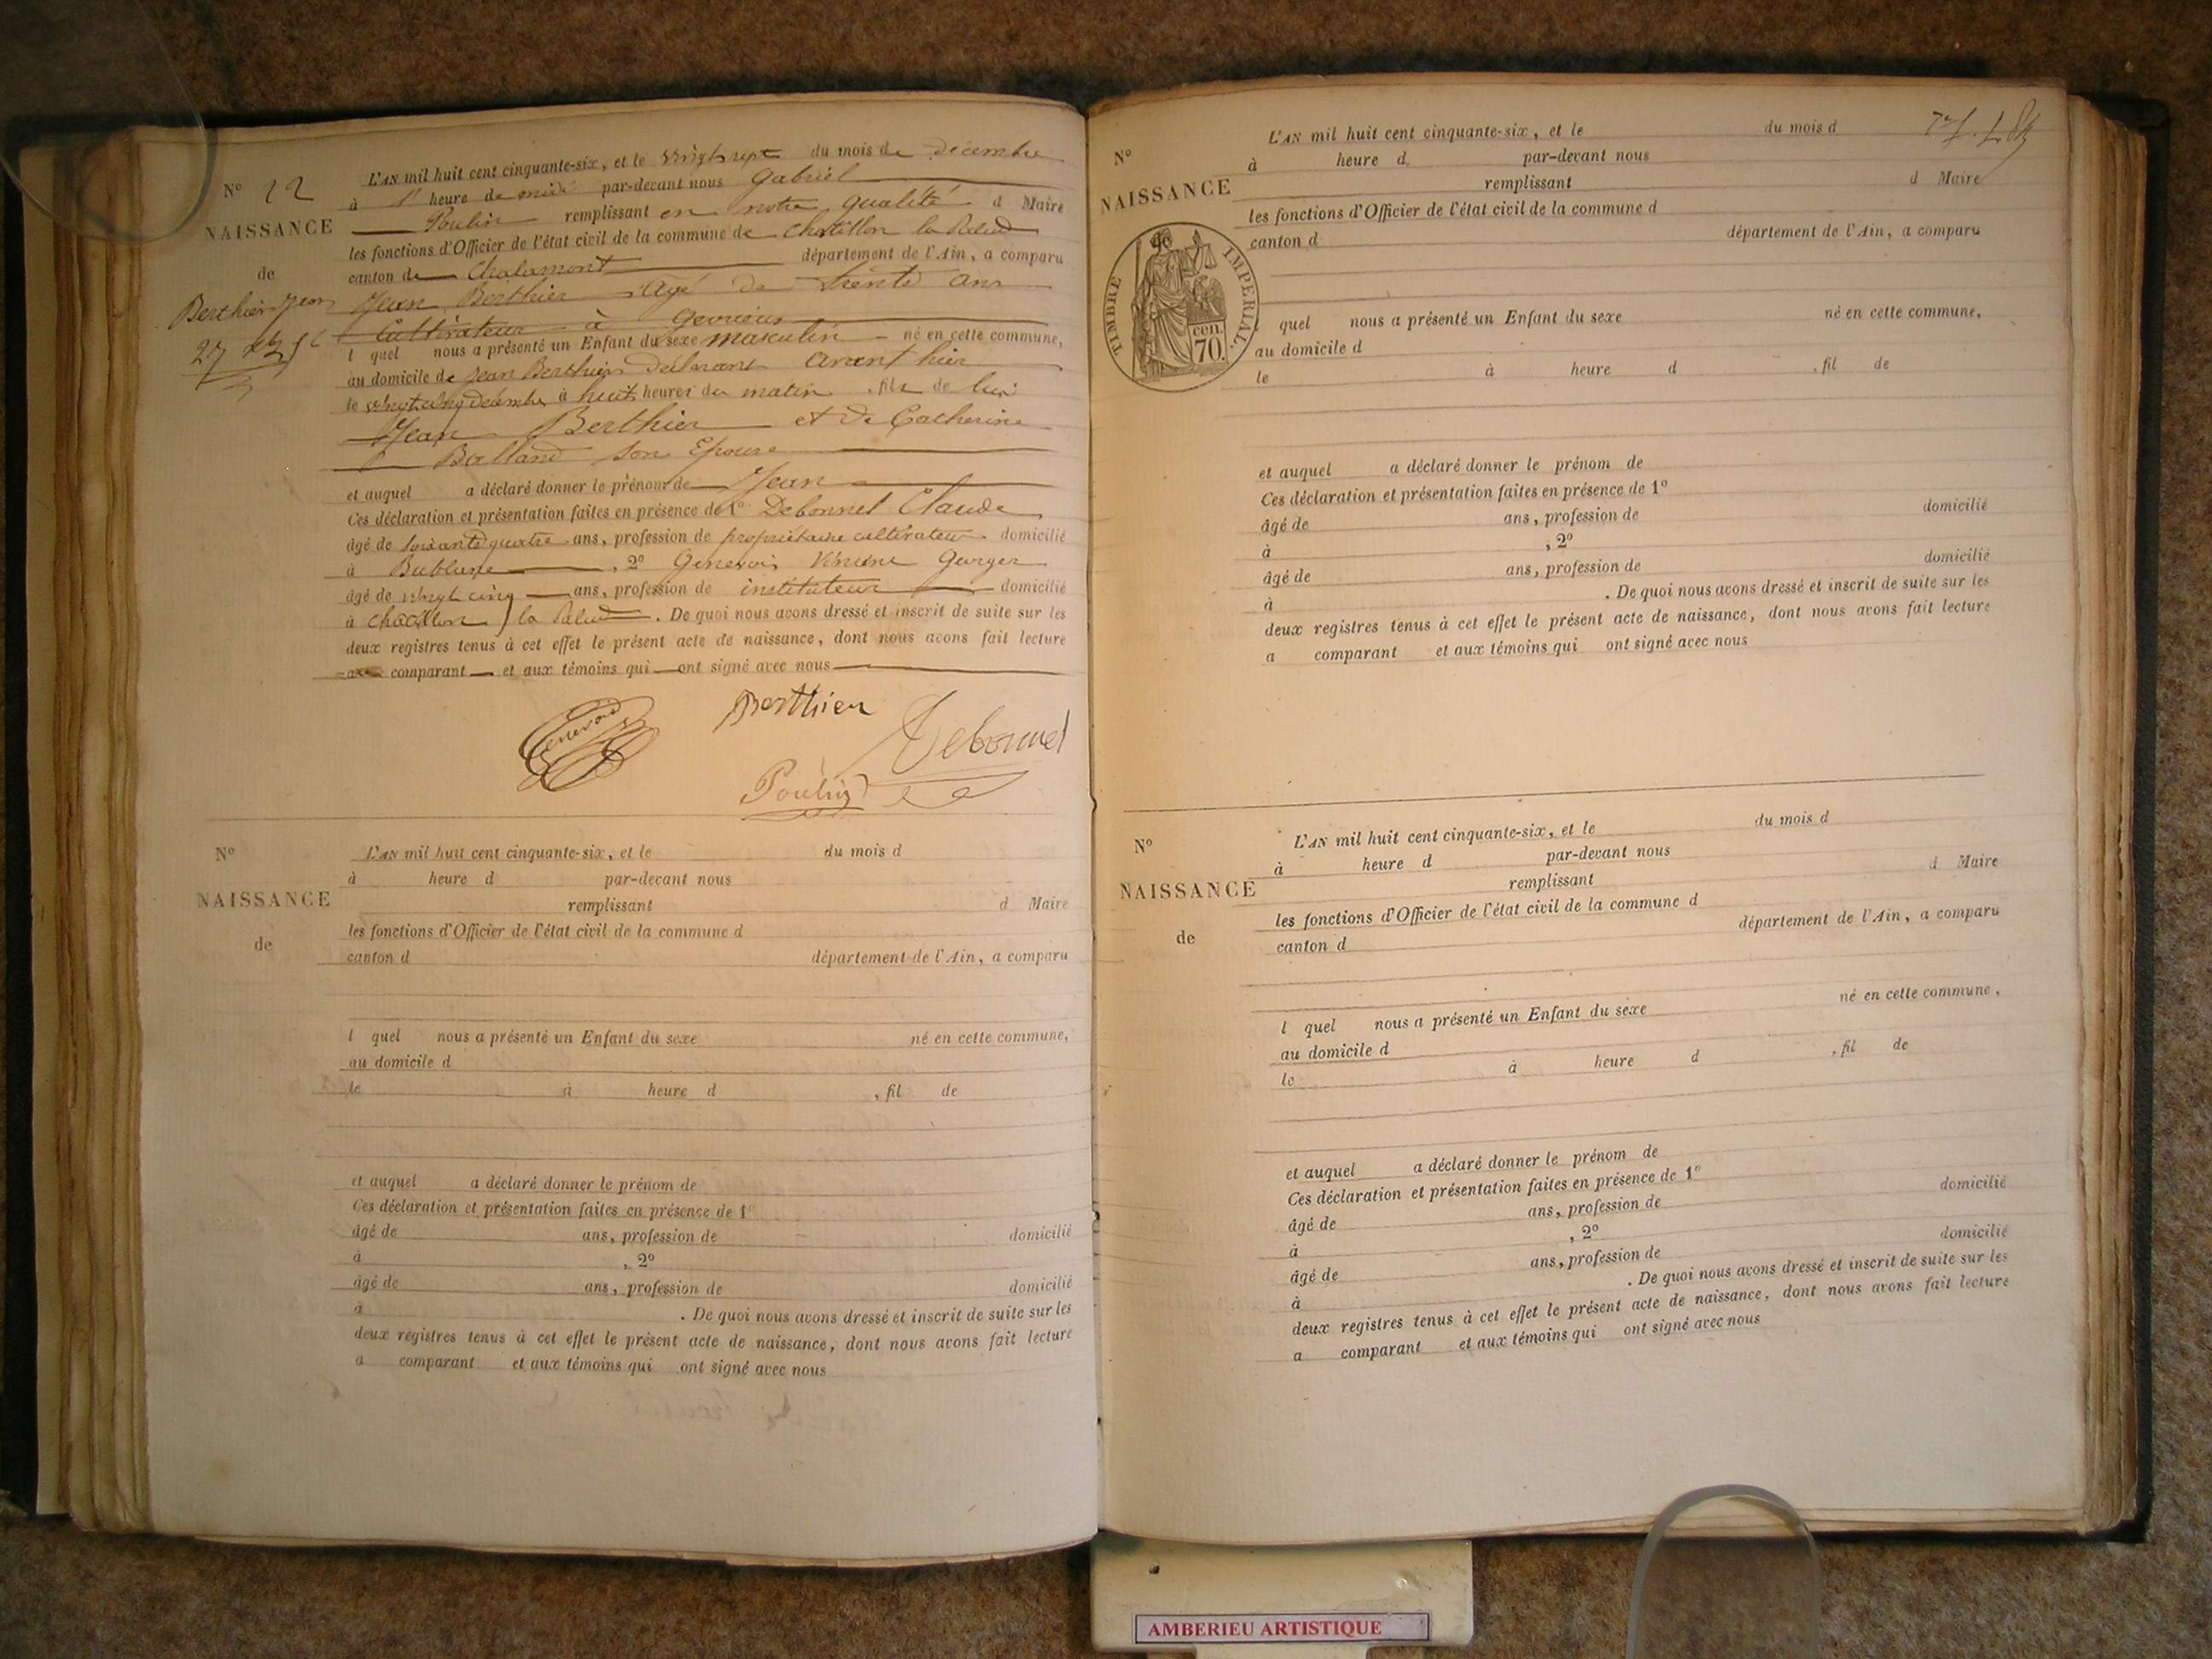 N° 22
NAISSANCE
de
Berthier Jean
27 Xbre 56
L'AN mil huit cent cinquante-six, et le vingt sept du mois de décembre
à 1 heure de midi par-devant nous Gabriel
Poulin remplissant en notre qualité d Maire
les fonctions d'Officier de l'état civil de la commune de Chatillon la Palud
canton de Chalamont département de l'Ain, a comparu
Jean Berthier agé de trente ans
Cultivateur à Gevrieux
l quel nous a présenté un Enfant du sexe masculin né en cette commune,
au domicile de Jean Berthier déclarant avant hier
le vingt cinq décembre à huit heures du matin, fils de lui
Jean Berthier et de Catherine
Balland son Epouse
et auquel a déclaré donner le prénom de Jean
Ces déclaration et présentation faites en présence de 1° Debonnel Claude
âgé de soixante quatre ans, profession de propriétaire cultivateur domicilié
à Bublane, 2° Genevois
âgé de vingt cinq ans, profession de instituteur domicilié
à Chatillon la Palud. De quoi nous avons dressé et inscrit de suite sur les
deux registres tenus à cet effet le présent acte de naissance, dont nous avons fait lecture
au comparant et aux témoins qui ont signé avec nous
Berthier
Genevois
Debonnel
Poulin
N°
NAISSANCE
de
L'AN mil huit cent cinquante-six, et le du mois d
à heure d par-devant nous
remplissant d Maire
les fonctions d'Officier de l'état civil de la commune d
canton d département de l'Ain, a comparu
l quel nous a présenté un Enfant du sexe né en cette commune,
au domicile d
le à heure d , fil de
et auquel a déclaré donner le prénom de
Ces déclaration et présentation faites en présence de 1°
âgé de ans, profession de domicilié
à , 2°
âgé de ans, profession de domicilié
à . De quoi nous avons dressé et inscrit de suite sur les
deux registres tenus à cet effet le présent acte de naissance, dont nous avons fait lecture
a comparant et aux témoins qui ont signé avec nous
N°
NAISSANCE
TIMBRE IMPERIAL.
cen.
70.
L'AN mil huit cent cinquante-six, et le du mois d
à heure d par-devant nous
remplissant d Maire
les fonctions d'Officier de l'état civil de la commune d
canton d département de l'Ain, a comparu
quel nous a présenté un Enfant du sexe né en cette commune,
au domicile d
le à heure d , fil de
et auquel a déclaré donner le prénom de
Ces déclaration et présentation faites en présence de 1°
âgé de ans, profession de domicilié
à , 2°
âgé de ans, profession de domicilié
à . De quoi nous avons dressé et inscrit de suite sur les
deux registres tenus à cet effet le présent acte de naissance, dont nous avons fait lecture
a comparant et aux témoins qui ont signé avec nous
N°
NAISSANCE
de
L'AN mil huit cent cinquante-six, et le du mois d
à heure d par-devant nous
remplissant d Maire
les fonctions d'Officier de l'état civil de la commune d
canton d département de l'Ain, a comparu
l quel nous a présenté un Enfant du sexe né en cette commune,
au domicile d
le à heure d , fil de
et auquel a déclaré donner le prénom de
Ces déclaration et présentation faites en présence de 1°
âgé de ans, profession de domicilié
à , 2°
âgé de ans, profession de domicilié
à . De quoi nous avons dressé et inscrit de suite sur les
deux registres tenus à cet effet le présent acte de naissance, dont nous avons fait lecture
a comparant et aux témoins qui ont signé avec nous
AMBERIEU ARTISTIQUE